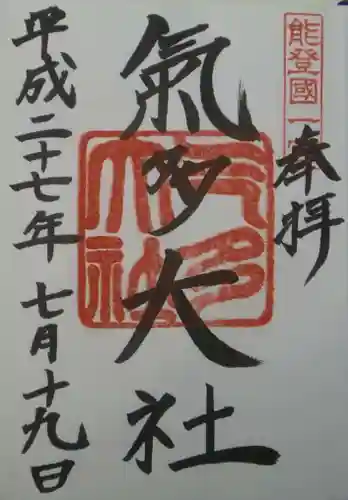 能登國一宮
奉拝
氣多大社
平成二十七年 七月十九日
氣多大社